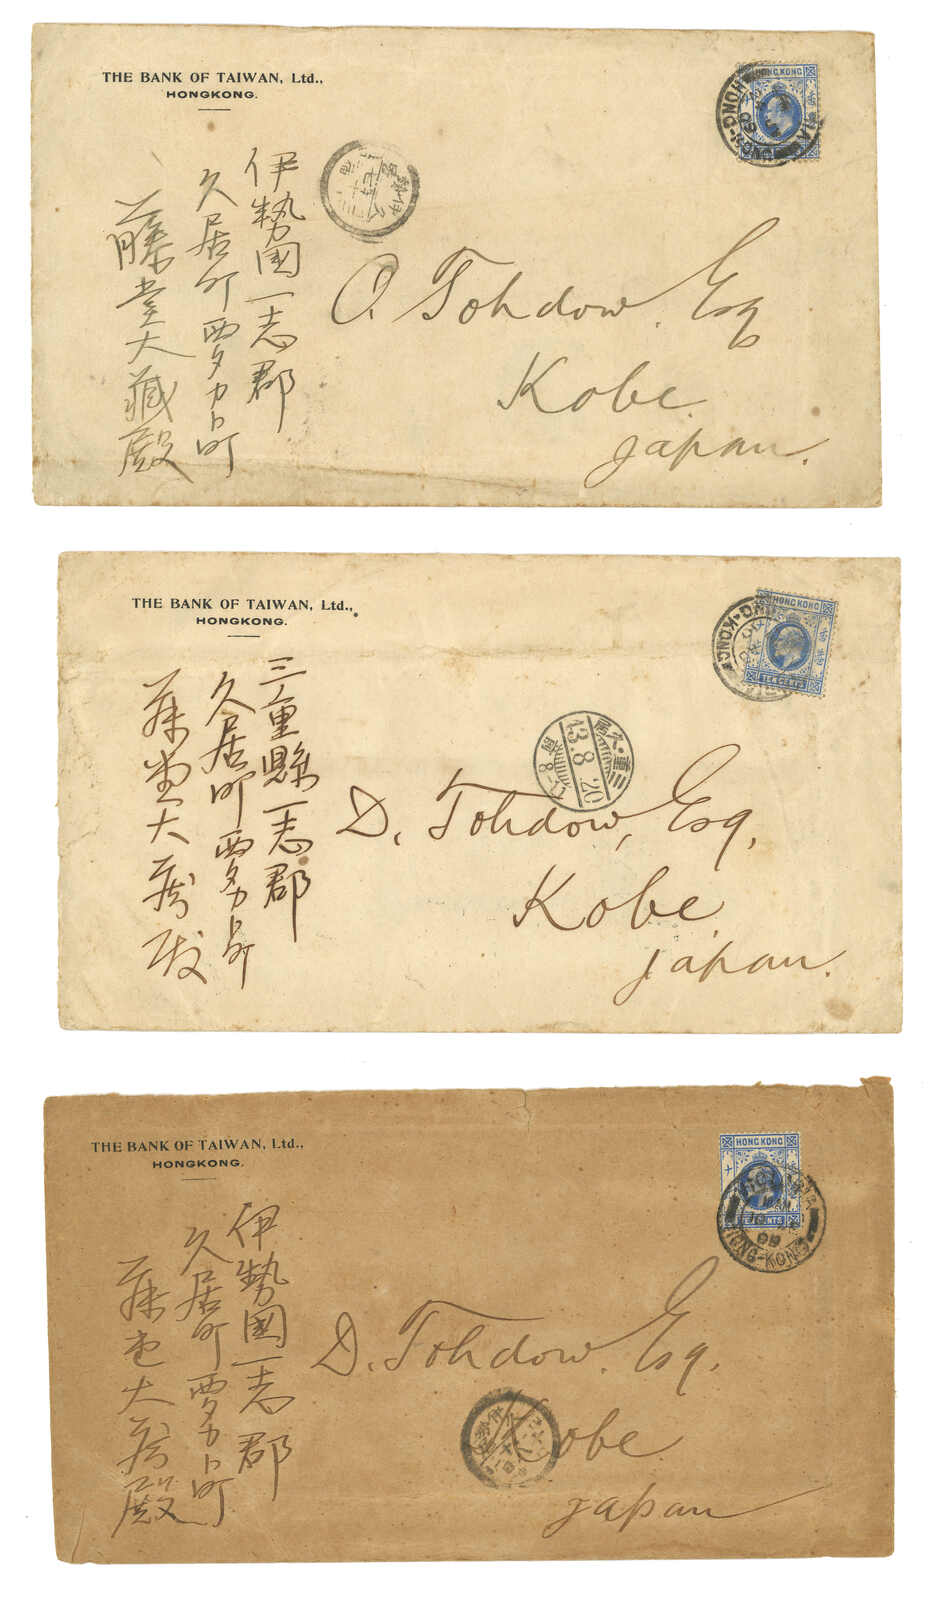 THE BANK OF TAIWAN, Ltd.,
HONGKONG.
HONG KONG
HONG-KONG
伊勢國一志郡
久居町
藤堂大蔵殿
O. Tohdow, Esq
Kobe.
Japan.
THE BANK OF TAIWAN, Ltd.,
HONGKONG.
HONG KONG
TEN CENTS
HONG-KONG
三重・久居
43.8.20
三重縣一志郡
久居町
藤堂大蔵殿
D. Tohdow, Esq.
Kobe.
Japan.
THE BANK OF TAIWAN, Ltd.,
HONGKONG.
HONG KONG
TEN CENTS
VICTORIA
HONG-KONG
伊勢國一志郡
久居町
藤堂大蔵殿
D. Tohdow. Esq.
Kobe
Japan